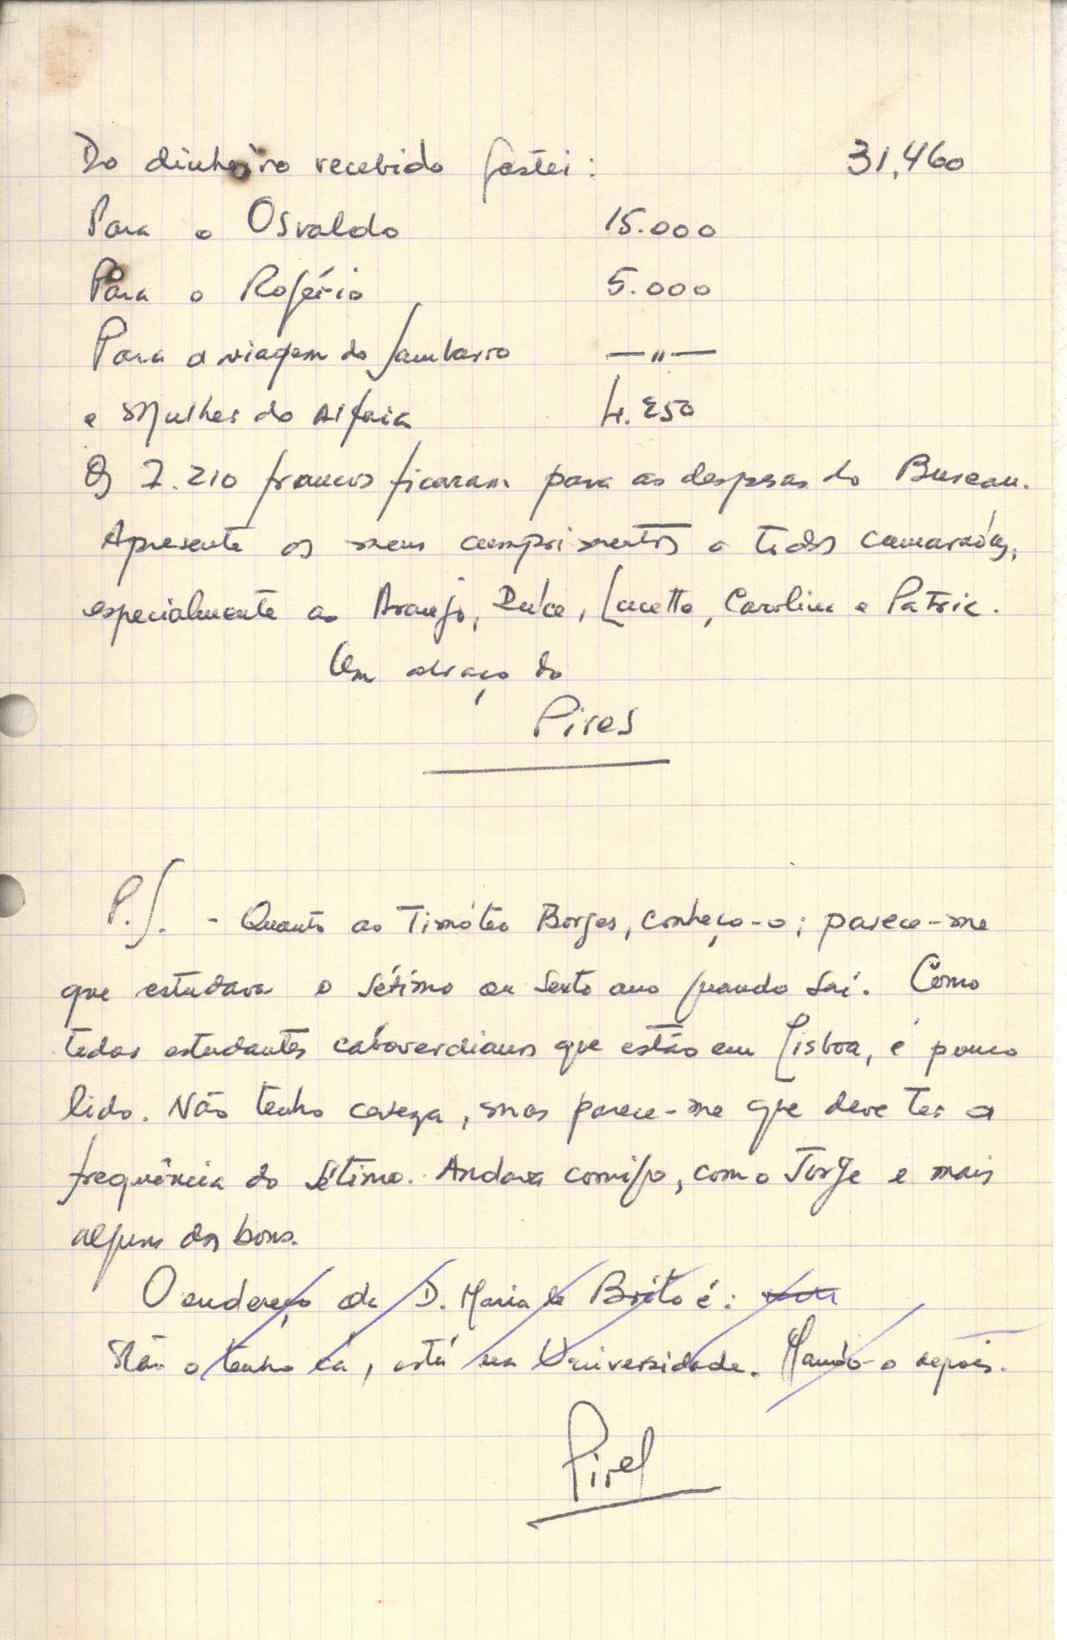 Do dinheiro recebido gastei: 31,460
Para o Osvaldo 15.000
Para o Rogério 5.000
Para a viagem do Sambarro —"—
e Mulher do Alfaia 4.250
Os 7.210 francos ficaram para as despesas do Bureau.
Apresente os meus cumprimentos a todos camaradas,
especialmente ao Araujo, Dulce, Lucette, Carolina e Patric.
Um abraço do
Pires
P.S. - Quanto ao Timóteo Borges, conheço-o; parece-me
que estudava o sétimo ou sexto ano quando saí. Como
todos estudantes caboverdianos que estão em Lisboa, é pouco
lido. Não tenho certeza, mas parece-me que deve ter a
frequência do sétimo. Andava comigo, com o Jorge e mais
alguns dos bons.
O endereço da D. Maria de Brito é:
Não o tenho cá, está na Universidade. Mando-o depois.
Pires